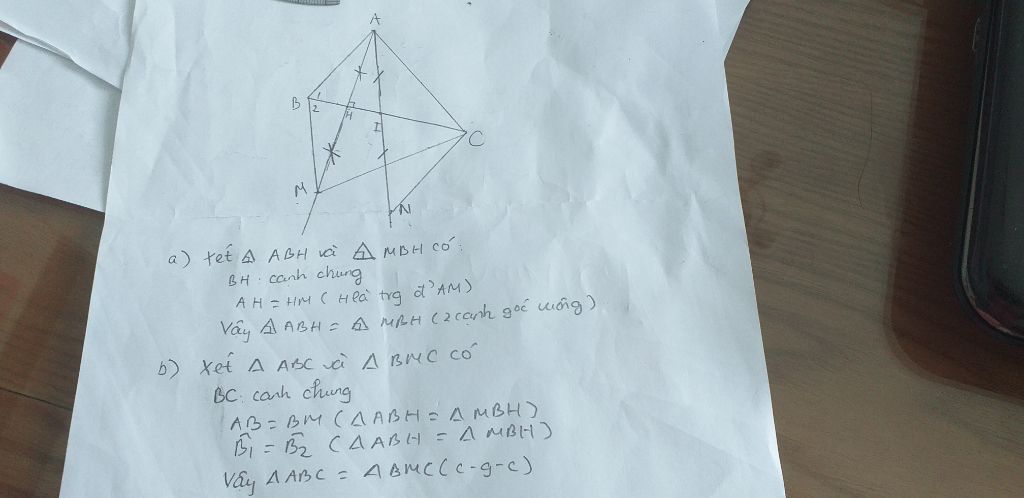 A
B 1
2
H
I
C
M
N
a) Xét △ ABH và △ MBH có:
BH: cạnh chung
AH = HM (H là trg đ' AM)
Vậy △ ABH = △ MBH (2 cạnh góc vuông)
b) Xét △ ABC và △ BMC có
BC: cạnh chung
AB = BM (△ ABH = △ MBH)
B̂1 = B̂2 (△ ABH = △ MBH)
Vậy △ ABC = △ BMC (c-g-c)